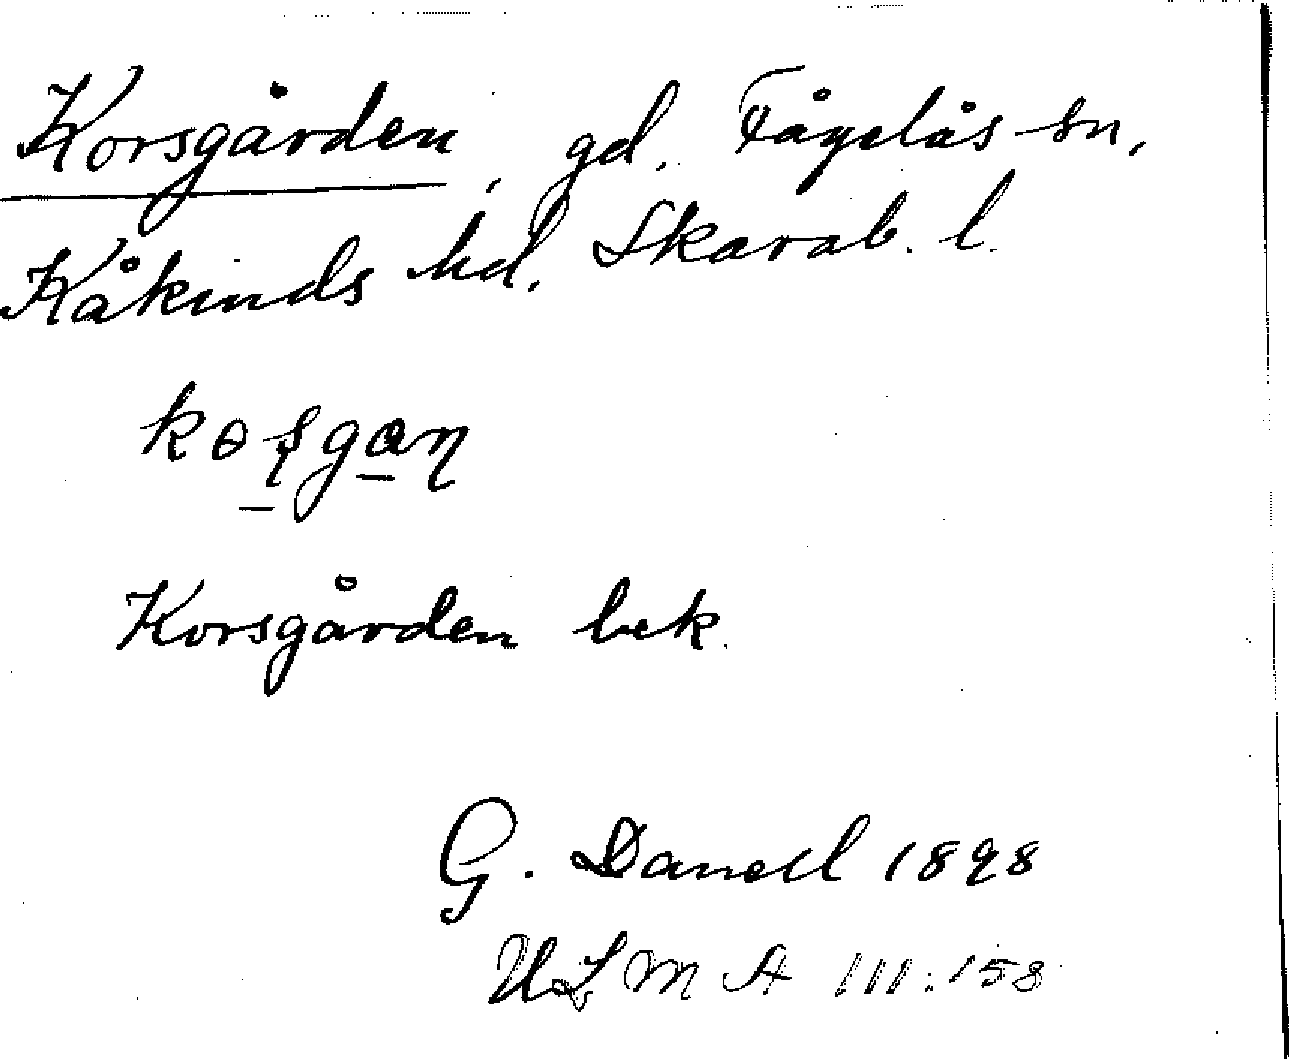 Korsgården, gd. Fågelås sn,
Kåkinds hd. Skarab. l.
Korsgården bek.
G. Danell 1898
ULMA 111:158